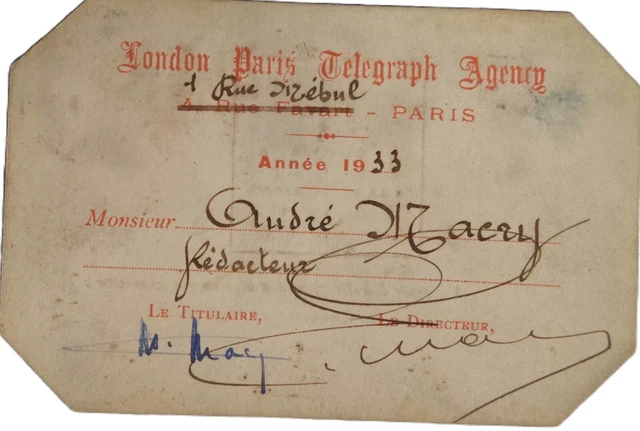 London Paris Telegraph Agency
1 Rue Méhul
4, Rue Favart - PARIS
Année 1933
Monsieur André Macry
Rédacteur
LE TITULAIRE, LE DIRECTEUR,